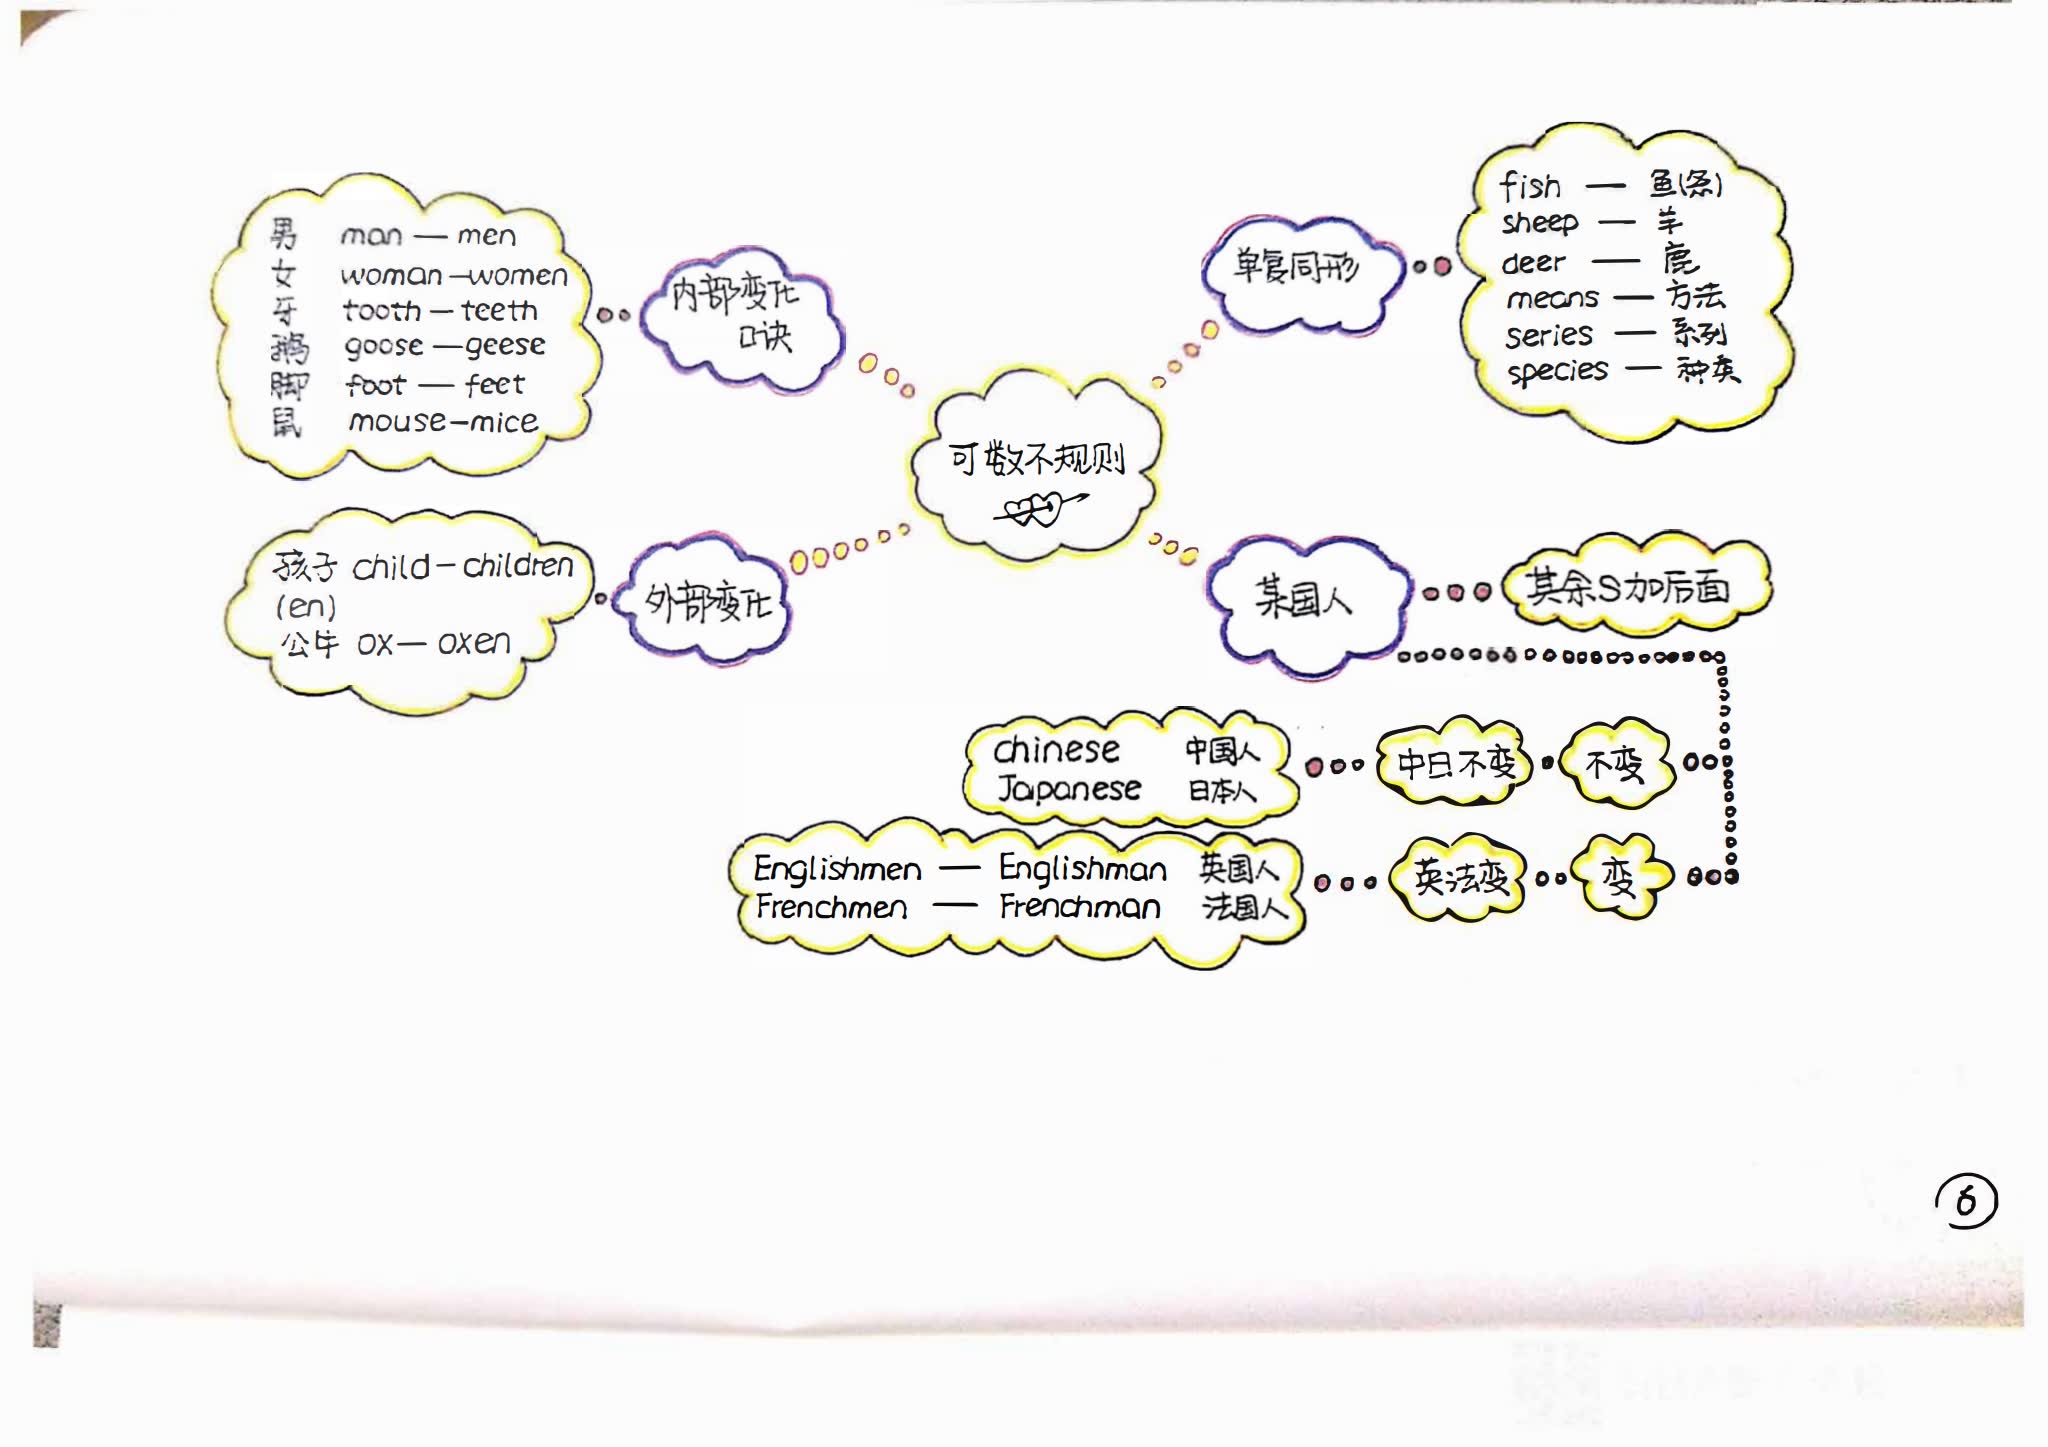 可数不规则
内部变化
口诀
男 man — men
女 woman — women
牙 tooth — teeth
鹅 goose — geese
脚 foot — feet
鼠 mouse — mice
外部变化
孩子 child — children
(en)
公牛 ox — oxen
单复同形
fish — 鱼(条)
sheep — 羊
deer — 鹿
means — 方法
series — 系列
species — 种类
某国人
其余S加后面
不变
中日不变
chinese 中国人
Japanese 日本人
变
英法变
Englishmen — Englishman 英国人
Frenchmen — Frenchman 法国人
6